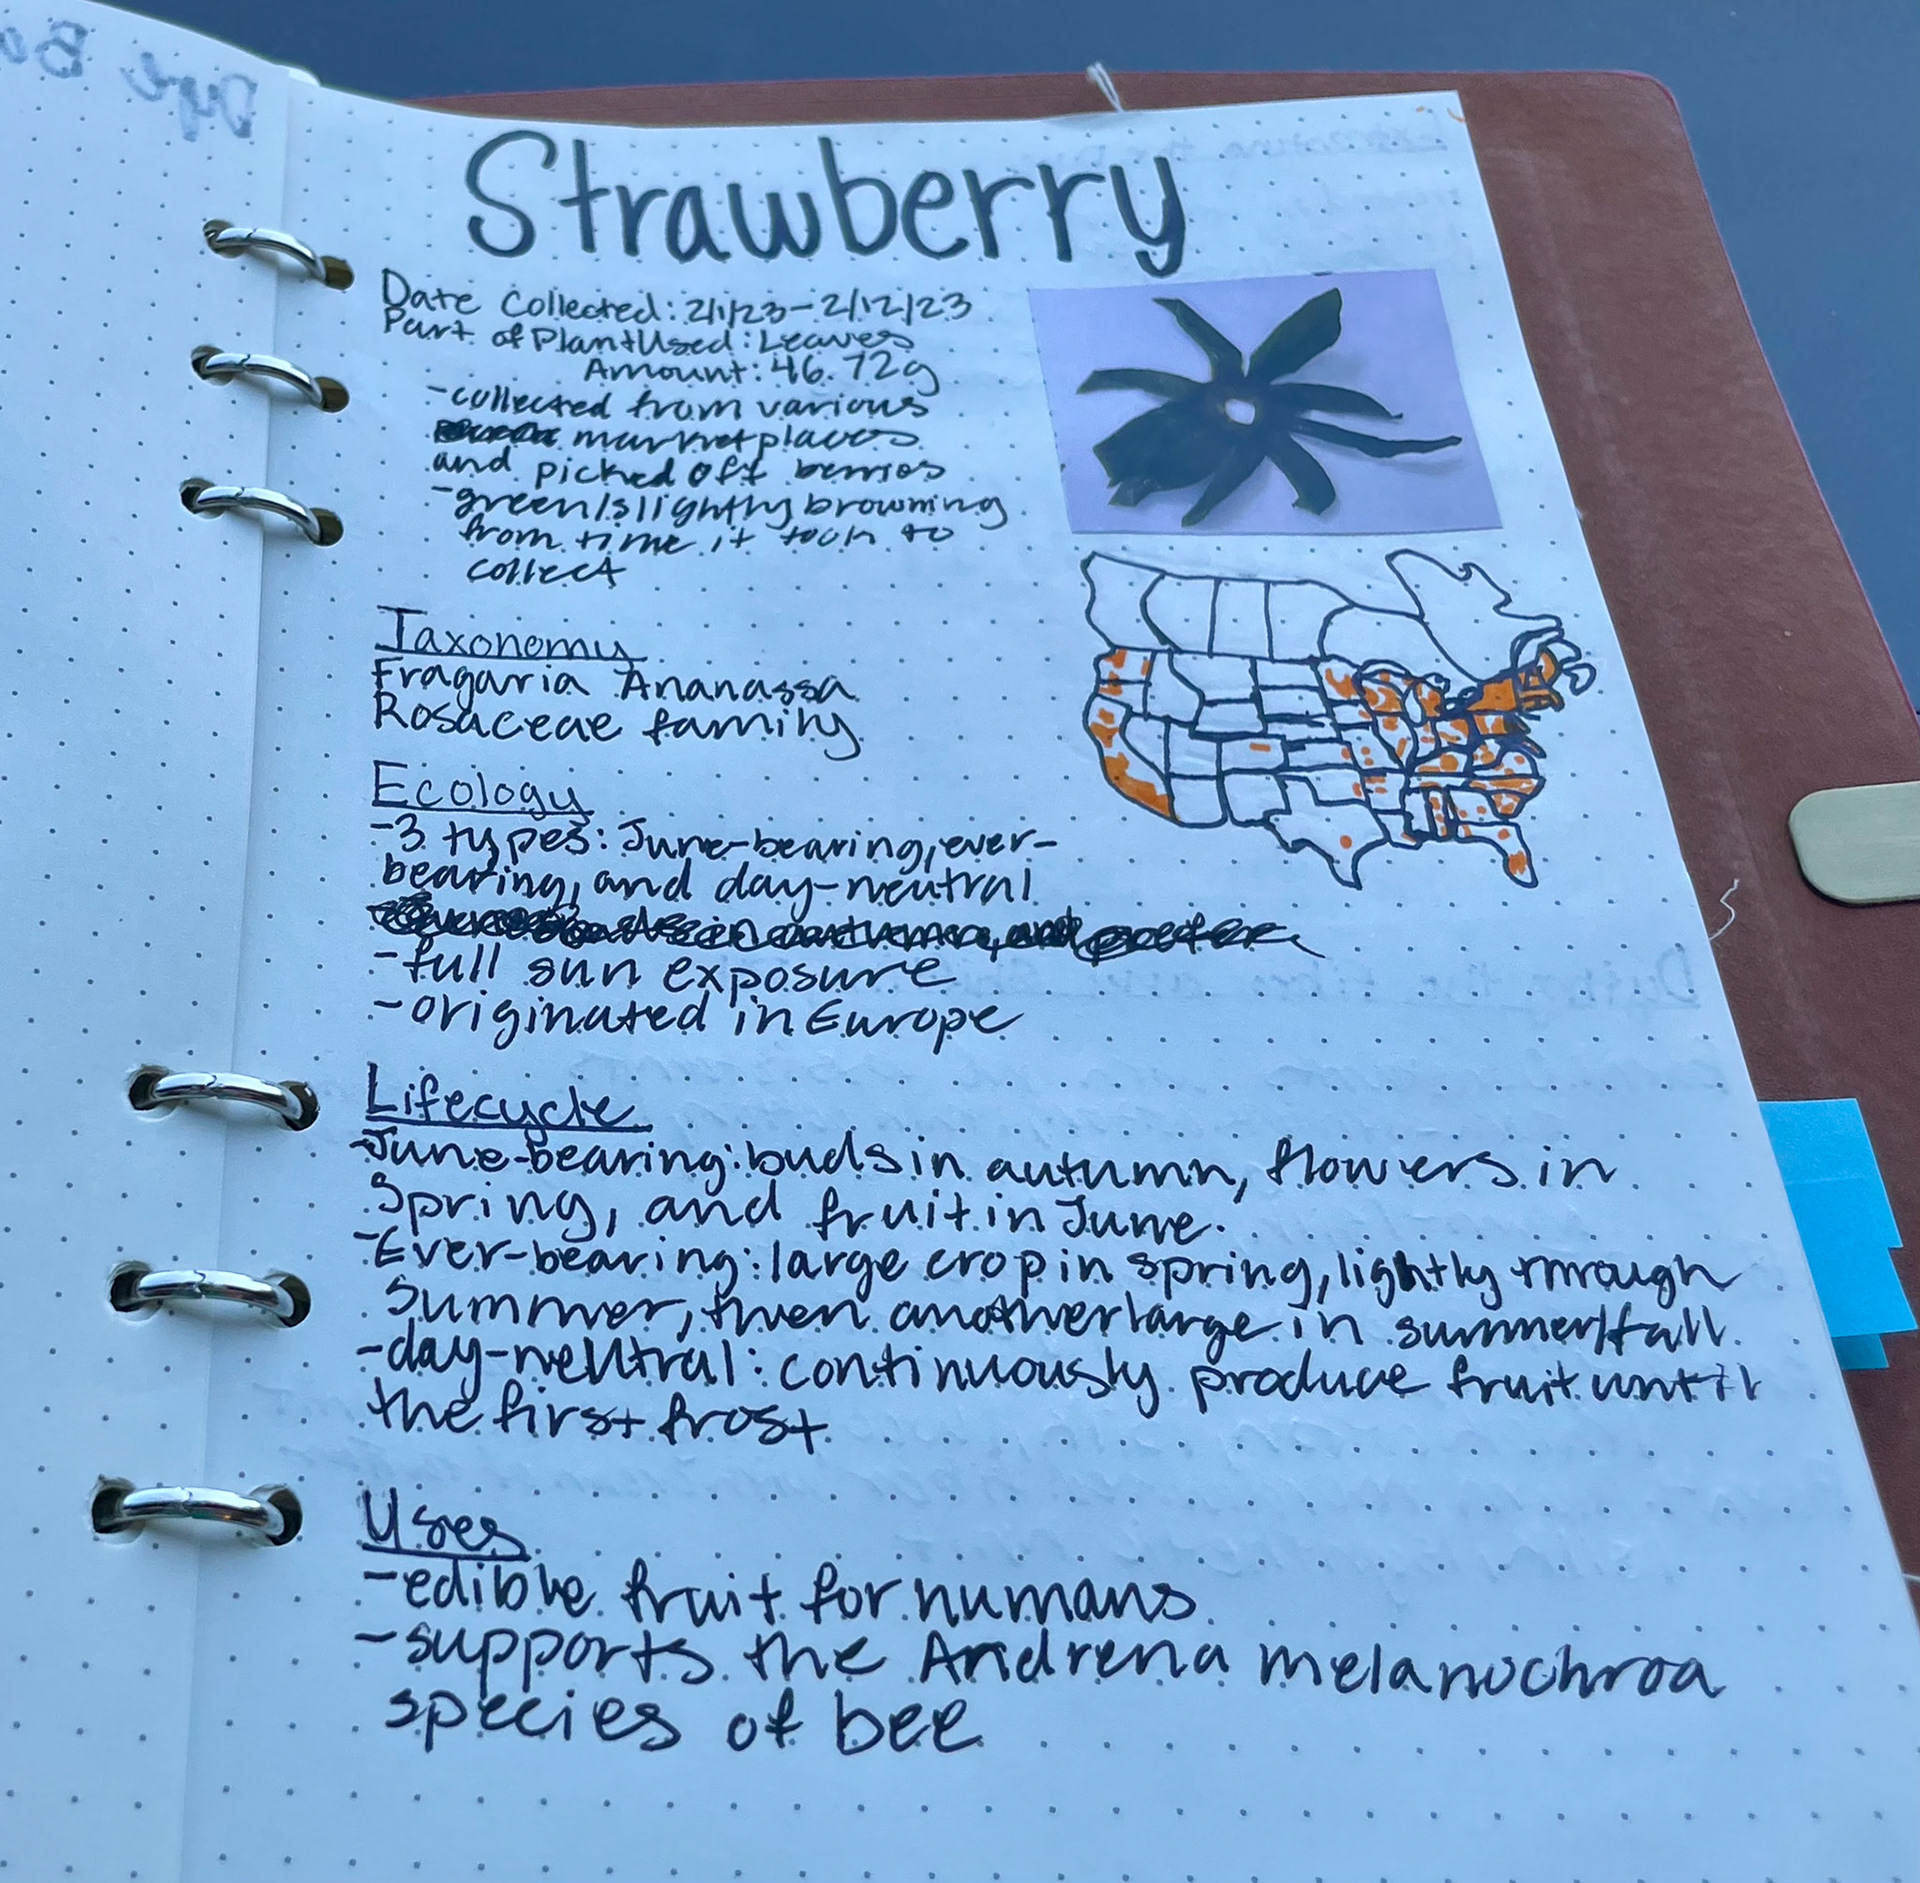 Strawberry
Date Collected: 2/1/23-2/12/23
Part of Plant Used: Leaves
Amount: 46.72g
-collected from various
marketplaces
and picked off berries
-green/slightly browning
from time it took to
collect
Taxonomy
Fragaria Ananassa
Rosaceae family
Ecology
-3 types: June-bearing, ever-
bearing, and day-neutral
-full sun exposure
-originated in Europe
Lifecycle
-June-bearing: buds in autumn, flowers in
Spring, and fruit in June.
-Ever-bearing: large crop in spring, lightly through
Summer, then another large in summer/fall
-day-neutral: continuously produce fruit until
the first frost
Uses
-edible fruit for humans
-supports the Andrena melanochroa
species of bee